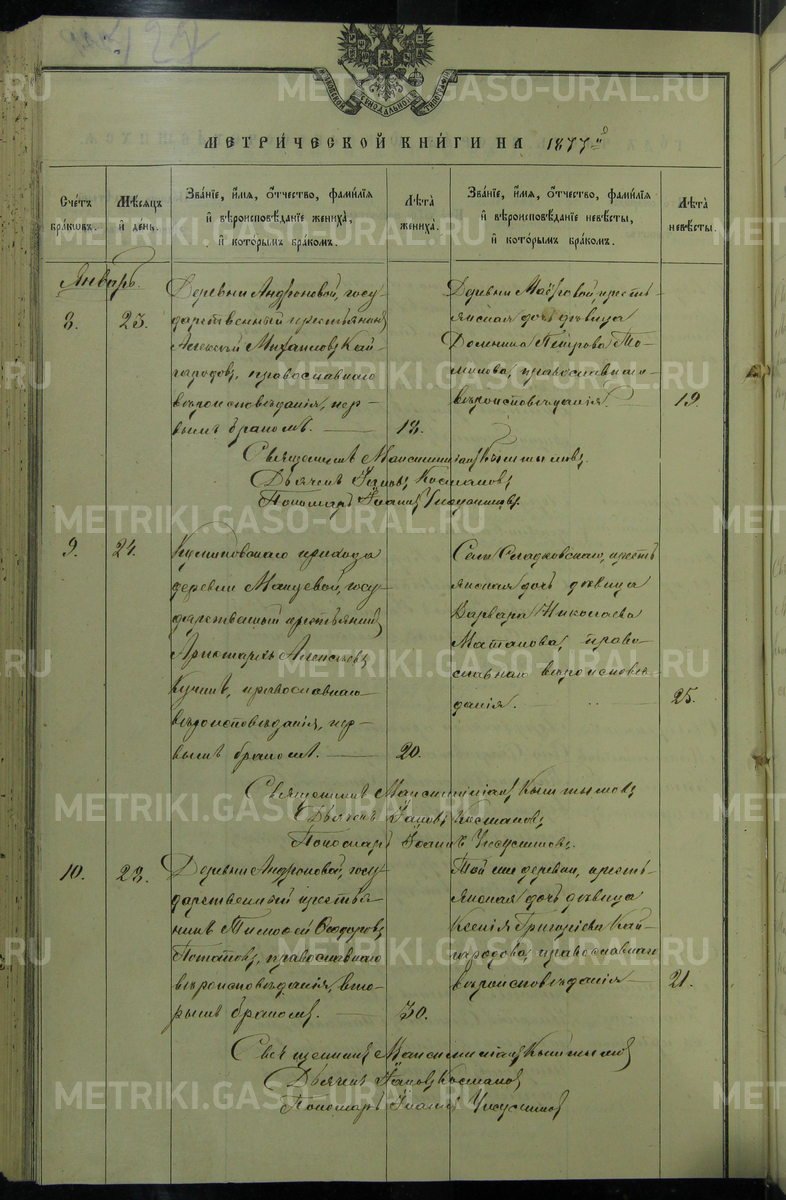 МЕТРИ́ЧЕСКОЙ КНИ́ГИ НА 1877 й
Сче́тъ бра́ковъ.
Мѣ́сяцъ и́ де́нь.
Зва́нїе, и́мя, о́тчество, фами́лїя и́ вѣроисповѣ́данїе жениха̀, и́ кото́рымъ бра́комъ.
Лѣ́та жениха̀.
Зва́нїе, и́мя, о́тчество, фами́лїя и́ вѣроисповѣ́данїе невѣ́сты, и́ кото́рымъ бра́комъ.
Лѣ́та невѣ́сты.
Январь.
8.
23.
Деревни Андроновой, госу-
дарственный крестьянинъ
Алексѣй Михаиловъ Кай-
городовъ, православнаго
вѣроисповѣданія, пер-
вымъ бракомъ.
18.
Деревни крестьянская дочь дѣвица
Домника Петрова
православнаго
вѣроисповѣданія.
19.
Священникъ Максимиліанъ Кыштымовъ
Дьячекъ Іаковъ Космаковъ
Пономарь Іоаннъ
9.
24.
прихода
деревни госу-
дарственный крестьянинъ
Аристархъ Алексѣевъ
православнаго
вѣроисповѣданія, пер-
вымъ бракомъ.
20.
Села Сладковскаго, кресть-
янская дочь дѣвица
Варвара Николаева
право-
славнаго вѣроисповѣ-
данія.
25.
Священникъ Максимиліанъ Кыштымовъ
Дьячекъ Іаковъ Космаковъ
Пономарь Іоаннъ
10.
23.
Деревни Андроновой, госу-
дарственный крестья-
нинъ Тимоѳей Ѳеодоровъ
Потаповъ, православнаго
вѣроисповѣданія, вто-
рымъ бракомъ.
30.
Той же деревни, кресть-
янская дочь дѣвица
Ксенія Григоріева Кай-
городова, православнаго
вѣроисповѣданія
21.
Священникъ Максимиліанъ Кыштымовъ
Дьячекъ Іаковъ Космаковъ
Пономарь Іоаннъ
METRIKI.GASO-URAL.RU